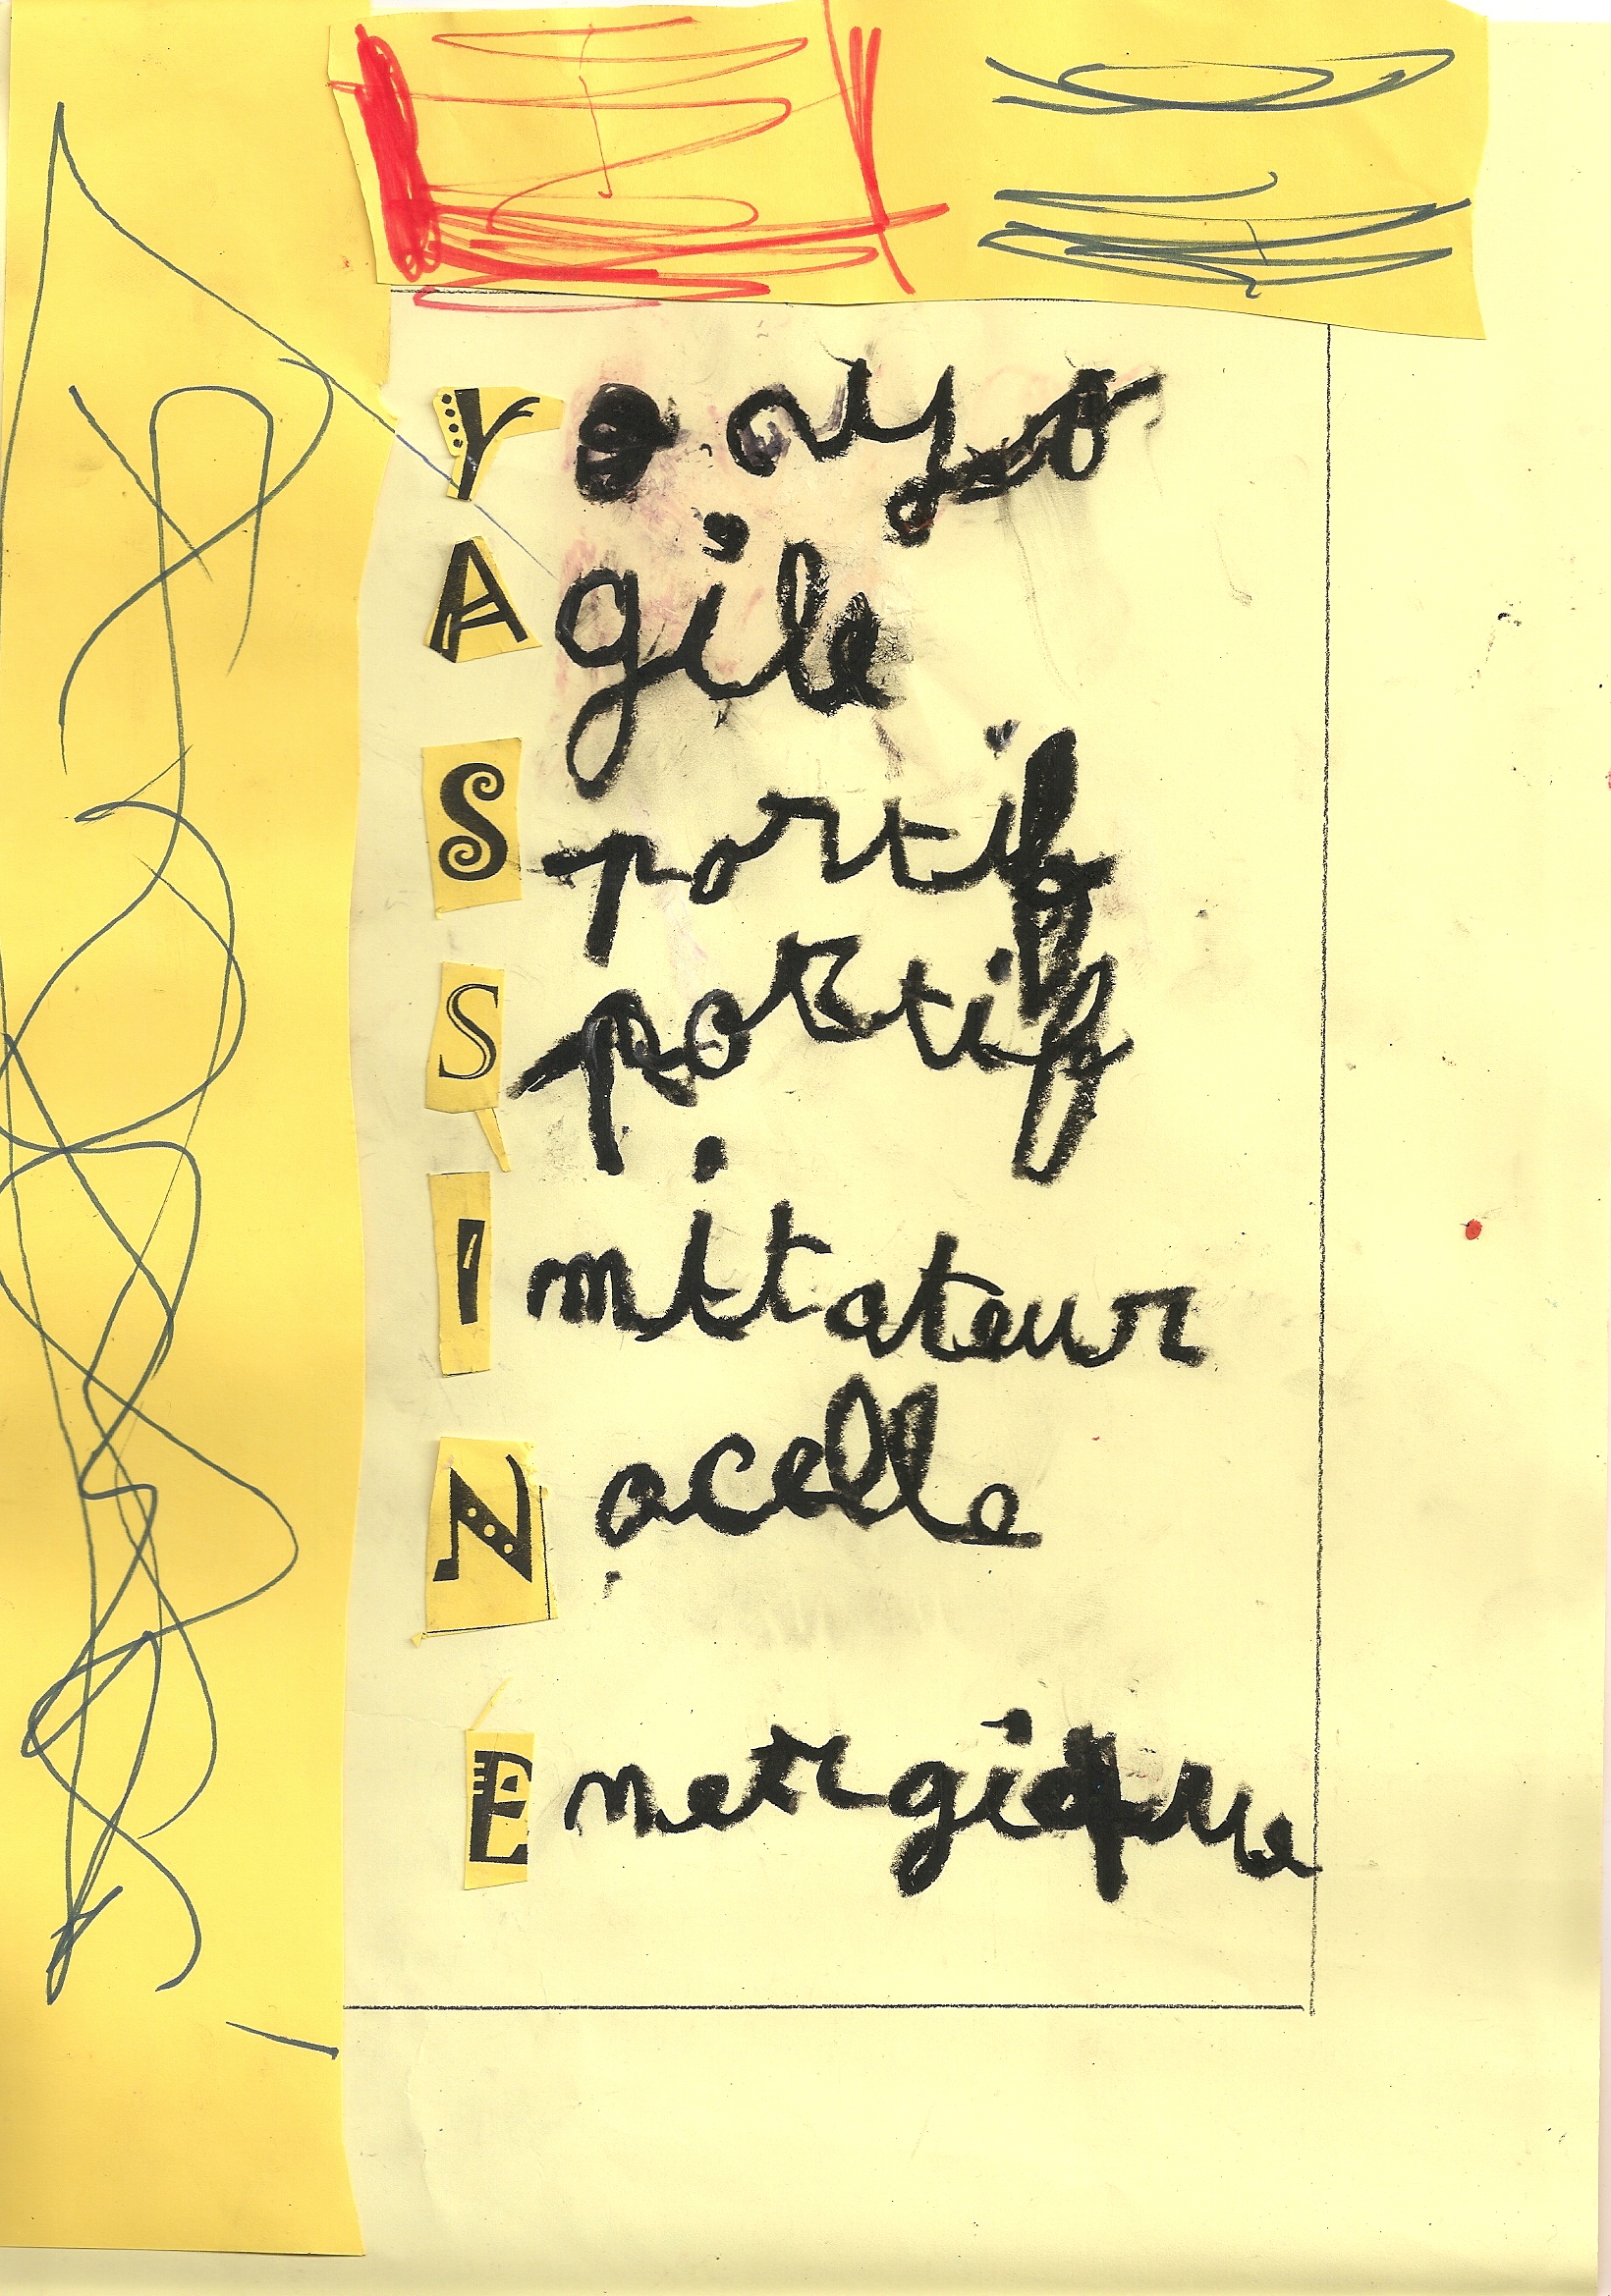 Y
Agile
Sportif
Sportif
Imitateur
Nacelle
Energique